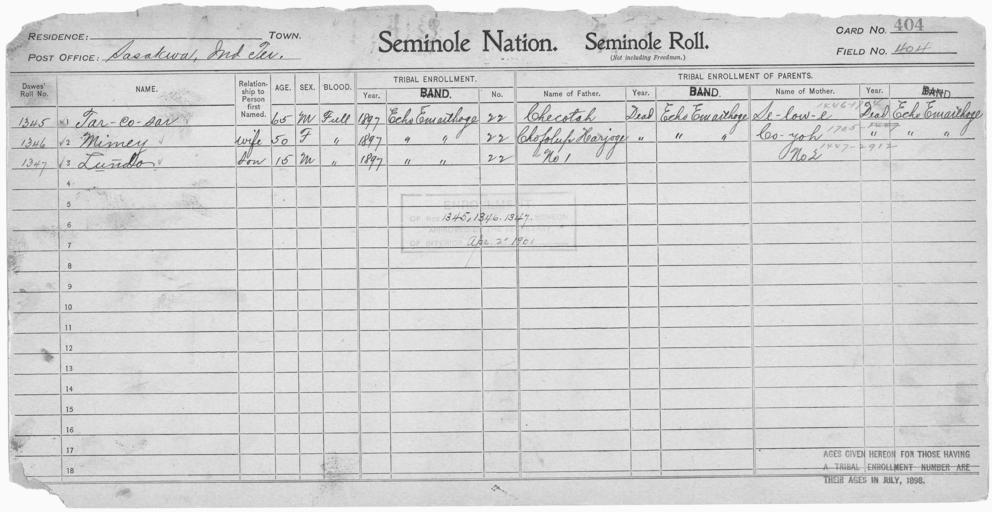 RESIDENCE: TOWN.
POST OFFICE: Sasakwa, Ind Ter.
Seminole Nation. Seminole Roll.
(Not including Freedmen.)
CARD NO. 404
FIELD NO. 404
Dawes' Roll No. NAME. Relationship to Person first Named. AGE. SEX. BLOOD. TRIBAL ENROLLMENT. TRIBAL ENROLLMENT OF PARENTS.
Year. BAND. No. Name of Father. Year. BAND. Name of Mother. Year. BAND.
1345 1 Tar-co-sar 65 M Full 1897 Echo Emaithoge 22 Checotah Dead Echo Emaithoge Se-low-e Dead Echo Emaithoge
1346 2 Mimey wife 50 F " 1897 " " 22 Chofolup Harjoge " " " Co-yoh " " "
1347 3 Lundo Son 15 M " 1897 " " 22 No 1 No 2
4
5
ENROLLMENT
6
1345, 1346. 1347.
7
OF INTERIOR Apr. 2" 1901
8
9
10
11
12
13
14
15
16
17
18
AGES GIVEN HEREON FOR THOSE HAVING
A TRIBAL ENROLLMENT NUMBER ARE
THEIR AGES IN JULY, 1898.